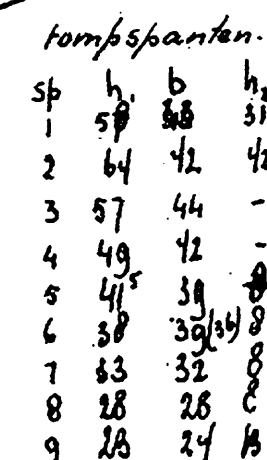 rompspanten.
sp h₁ b h₂
1
2 64 42 42
3 57 44 -
4 49 42 -
5 41⁵ 39
6 38 39(36) 8
7 33 32 8
8 28 28
9 23 24 13